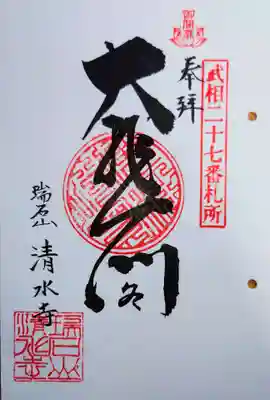 武相二十七番札所
奉拝
大悲閣
瑞石山 清水寺
瑞石山
清水寺